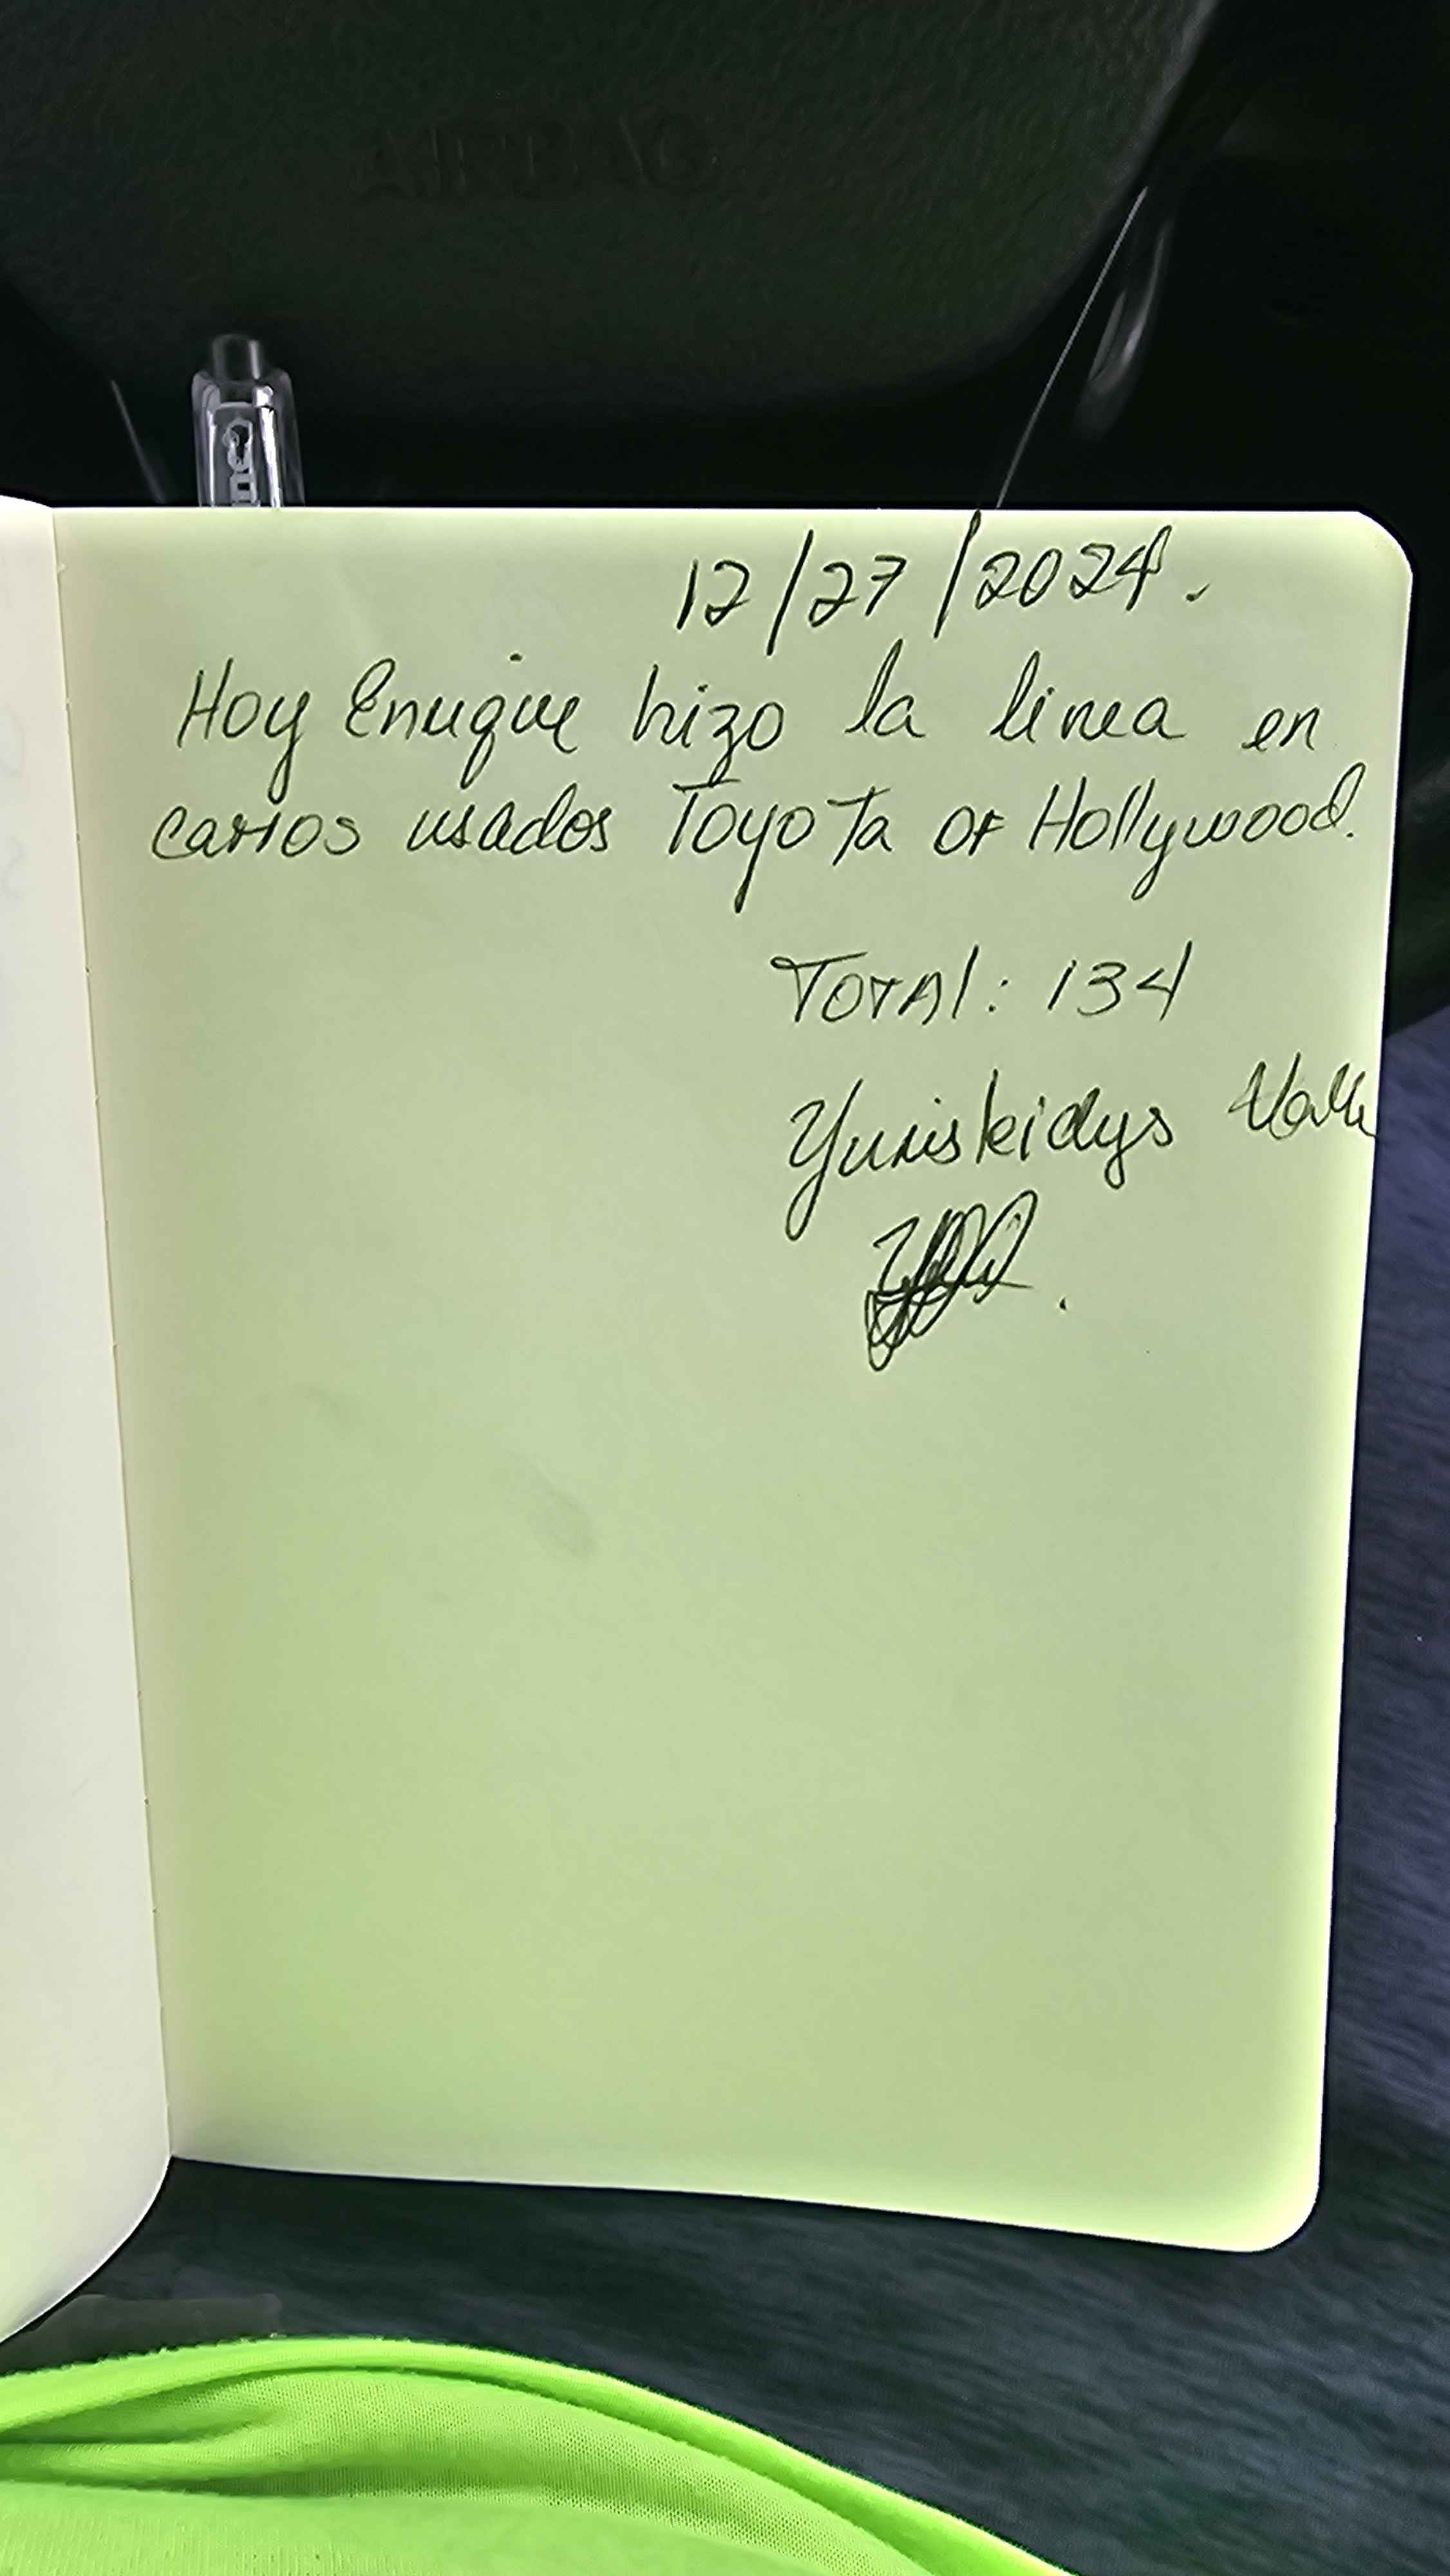 AIRBAG
12/27/2024.
Hoy Enrique hizo la linea en
carros usados Toyota OF Hollywood.
TOTAl: 134
Yuriskidys Valle